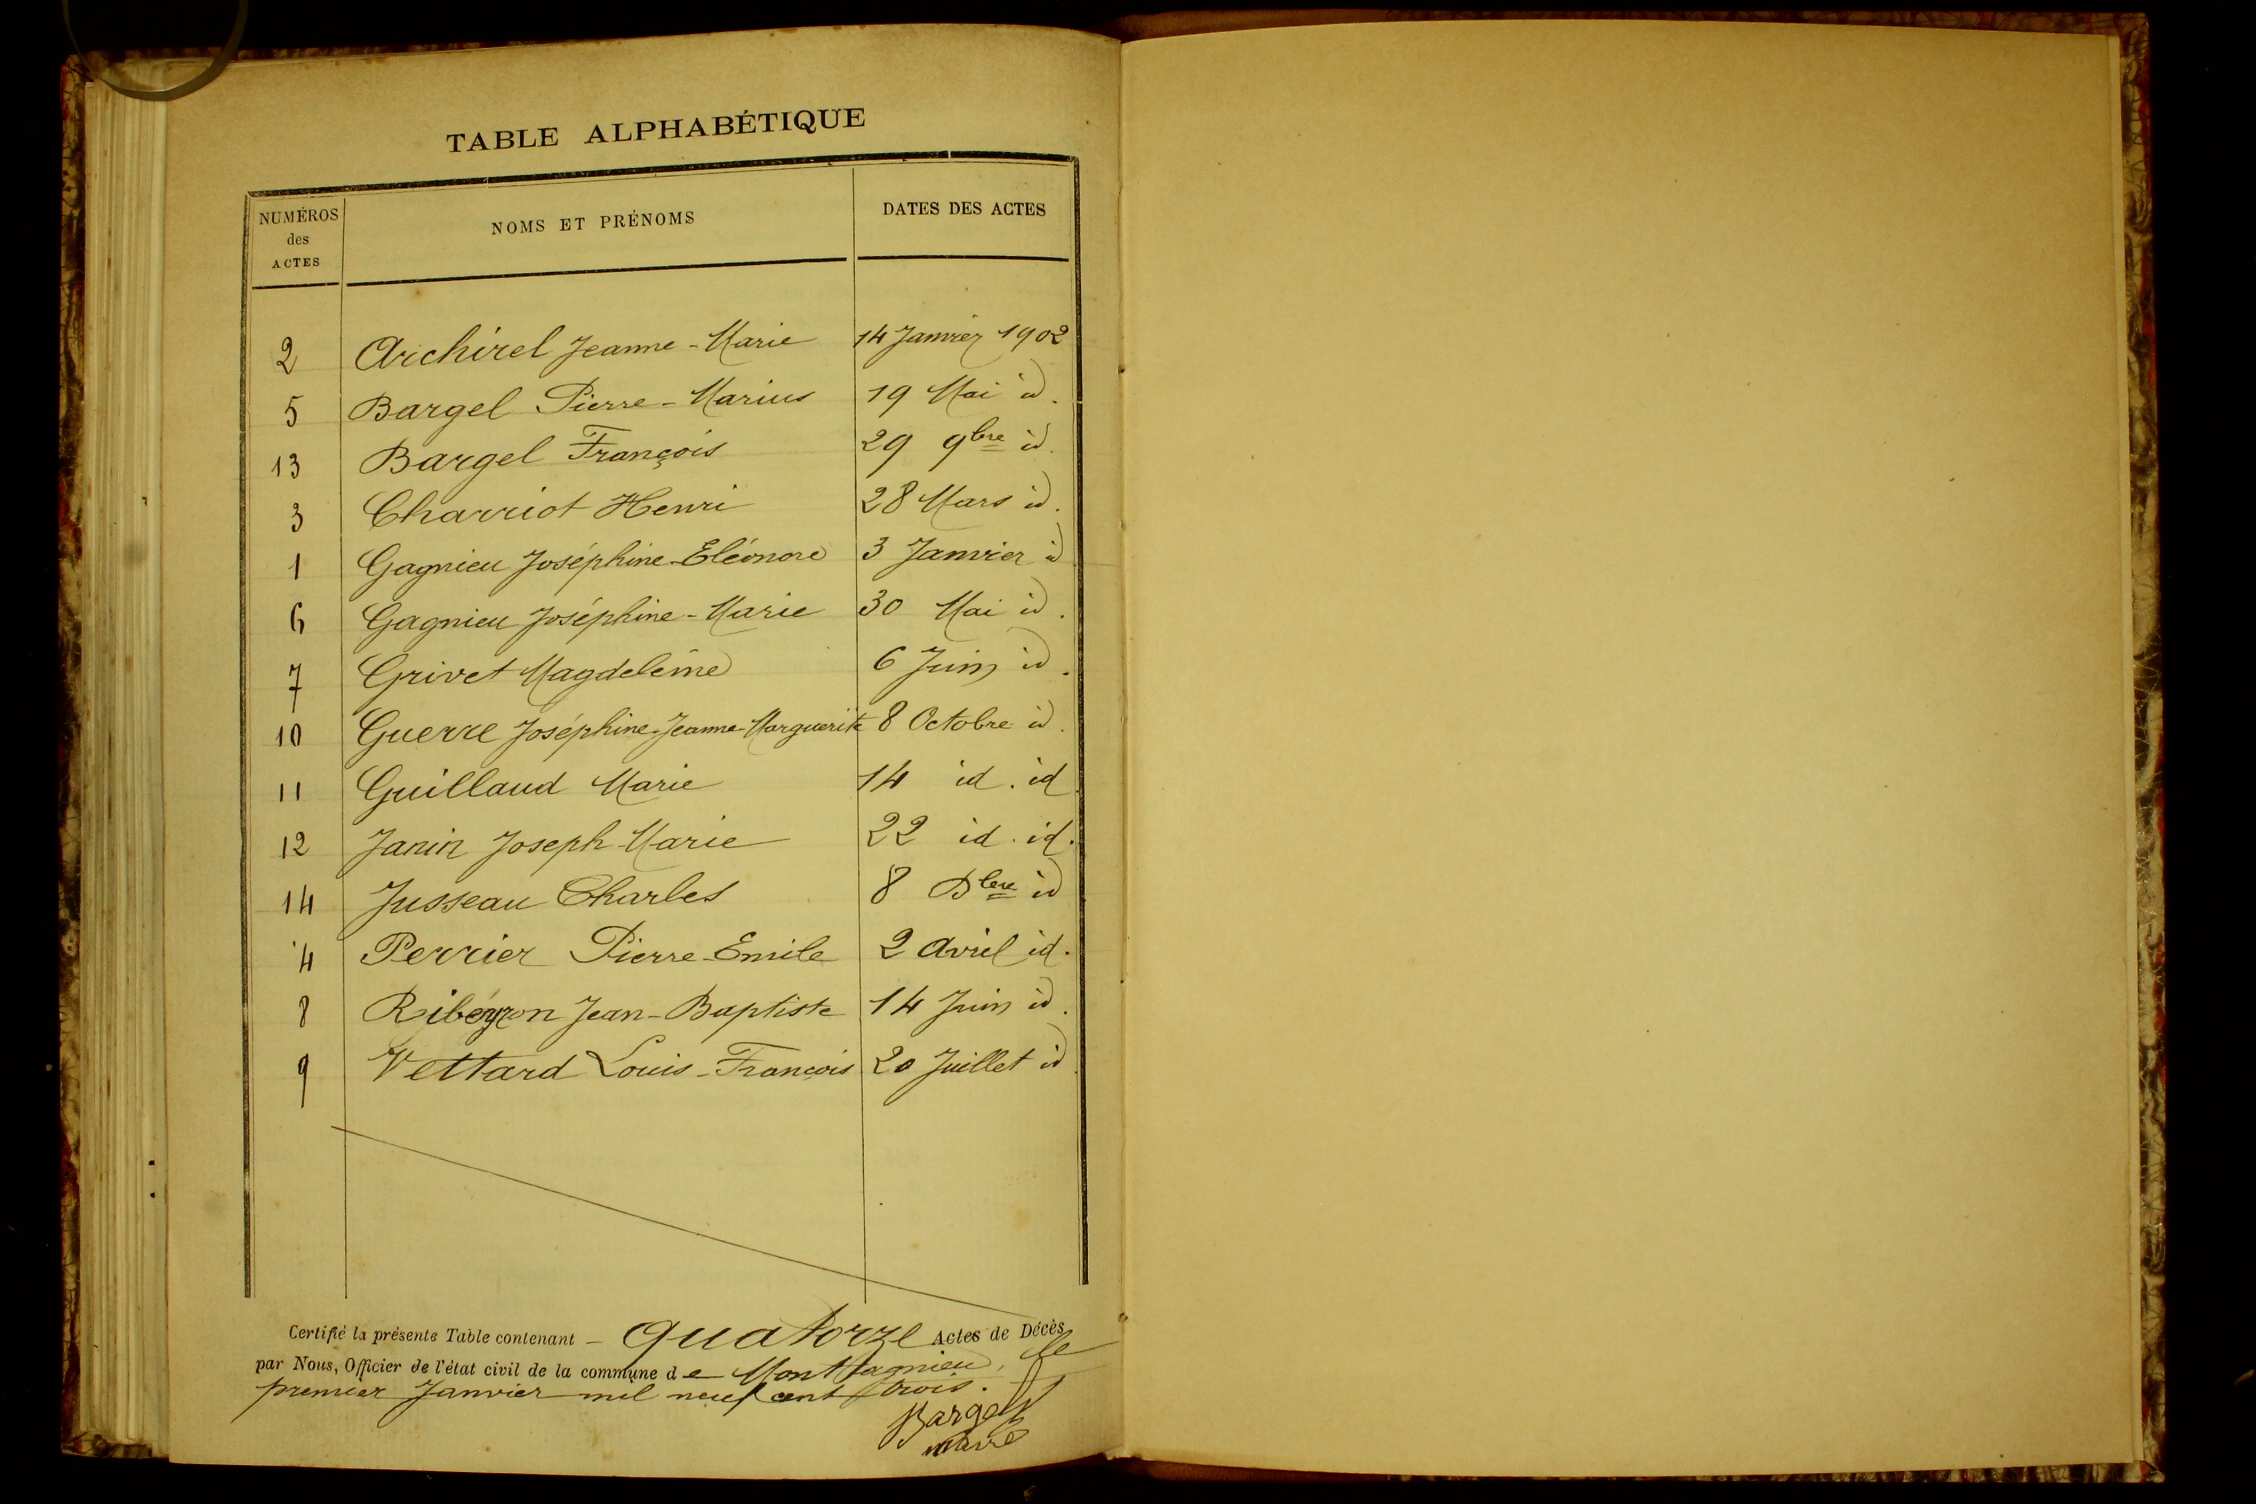 TABLE ALPHABÉTIQUE
NUMÉROS des ACTES NOMS ET PRÉNOMS DATES DES ACTES
2 Archirel Jeanne-Marie 14 Janvier 1902
5 Bargel Pierre-Marius 19 Mai id.
13 Bargel François 29 9bre id.
3 Charriot Henri 28 Mars id.
1 Gagnieu Joséphine-Eléonore 3 Janvier id
6 Gagnieu Joséphine-Marie 30 Mai id.
7 Grivet Magdeleine 6 Juin id.
10 Guerre Joséphine-Jeanne-Marguerite 8 Octobre id.
11 Guillaud Marie 14 id. id
12 Janin Joseph-Marie 22 id. id.
14 Jusseau Charles 8 Dbre id
4 Perrier Pierre-Emile 2 Avril id.
8 Ribéyron Jean-Baptiste 14 Juin id.
9 Vettard Louis-François 20 Juillet id
Certifié la présente Table contenant - quatorze Actes de Décès
par Nous, Officier de l'état civil de la commune de Montagnieu, le
premier Janvier mil neuf cent trois.
Bargel
maire